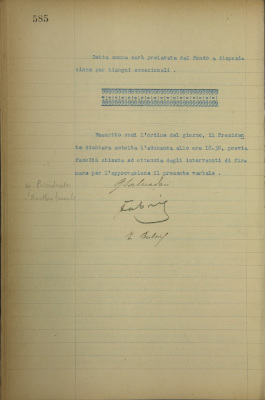 585
Detta somma sarà prelevata dal Fondo a disposi
zione per bisogni eccezionali.
Esaurito così l'ordine del giorno, il Presiden
te dichiara sciolta l'adunanza alle ore 18.30, previa
chiesta ed ottenuta dagli intervenuti di fir
mare per l'approvazione il presente verbale.